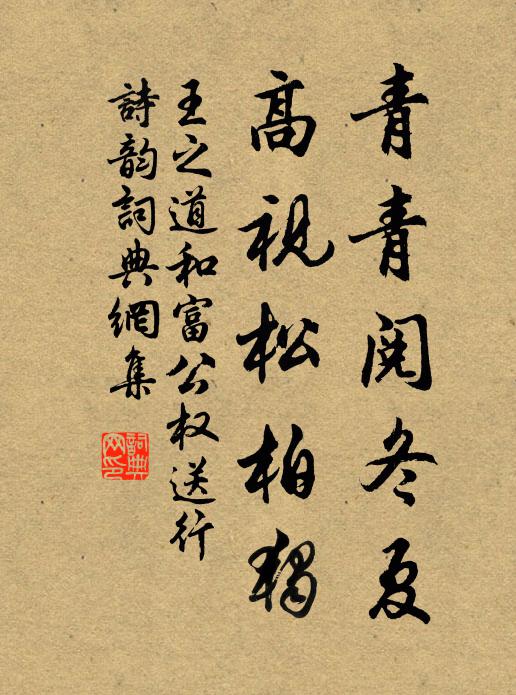 青青閱冬夏
高視松柏獨
王之道和富公权送行
詩韵詞典網集
詞典网印